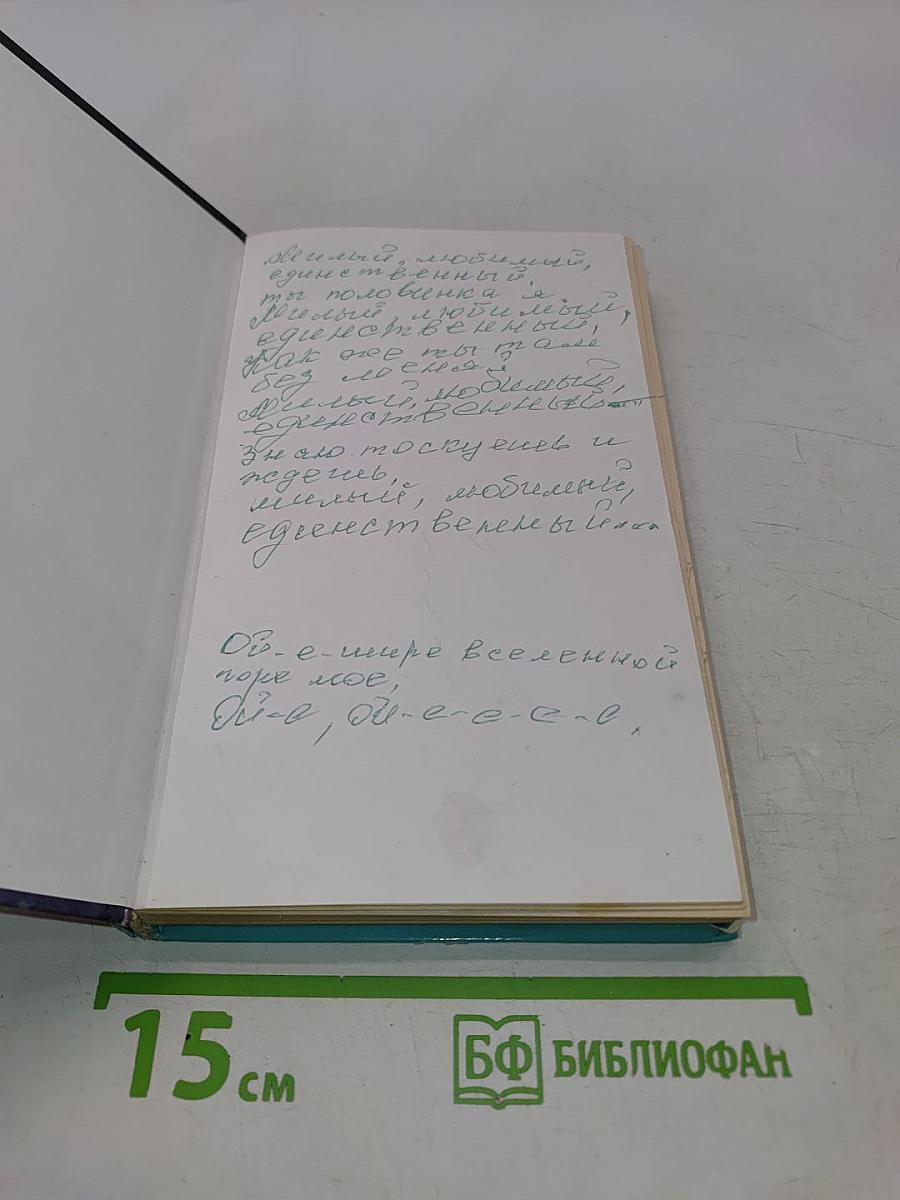 милый, любимый,
единственный,
ты половинка я.
Милый, любимый,
единственный,
Как же ты там
без меня?
Милый, любимый,
единственный
Знаю тоскуешь и
ждешь,
милый, любимый,
единственный...
Ой-е-шире вселенной
горе мое,
Ой-е, ой-е-е-е-е-е.
15 см
БФ БИБЛИОФАН